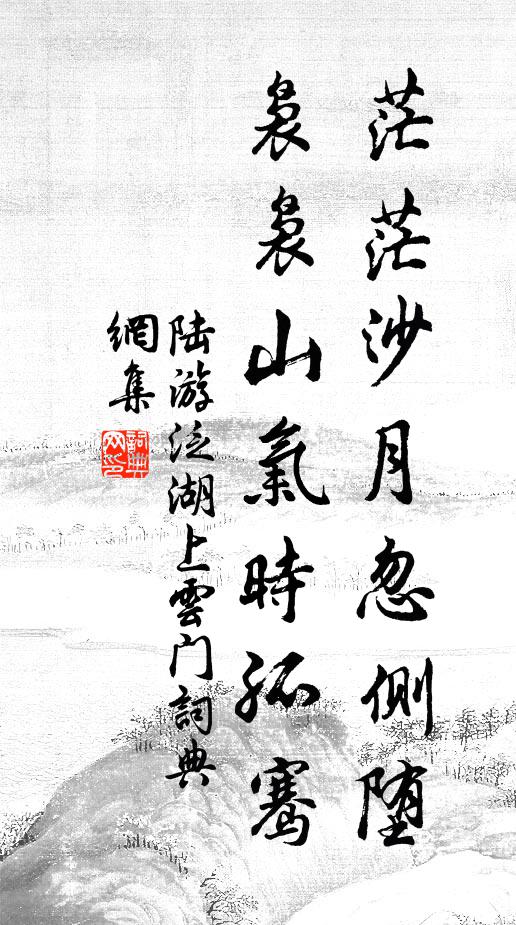 茫茫沙月忽側墮
裊裊山氣時孤騫
陸游泛湖上雲門詞典
網集
詞典網印